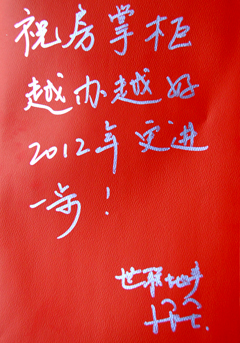 祝房掌柜
越办越好
2012年更进
一步！
世联地产